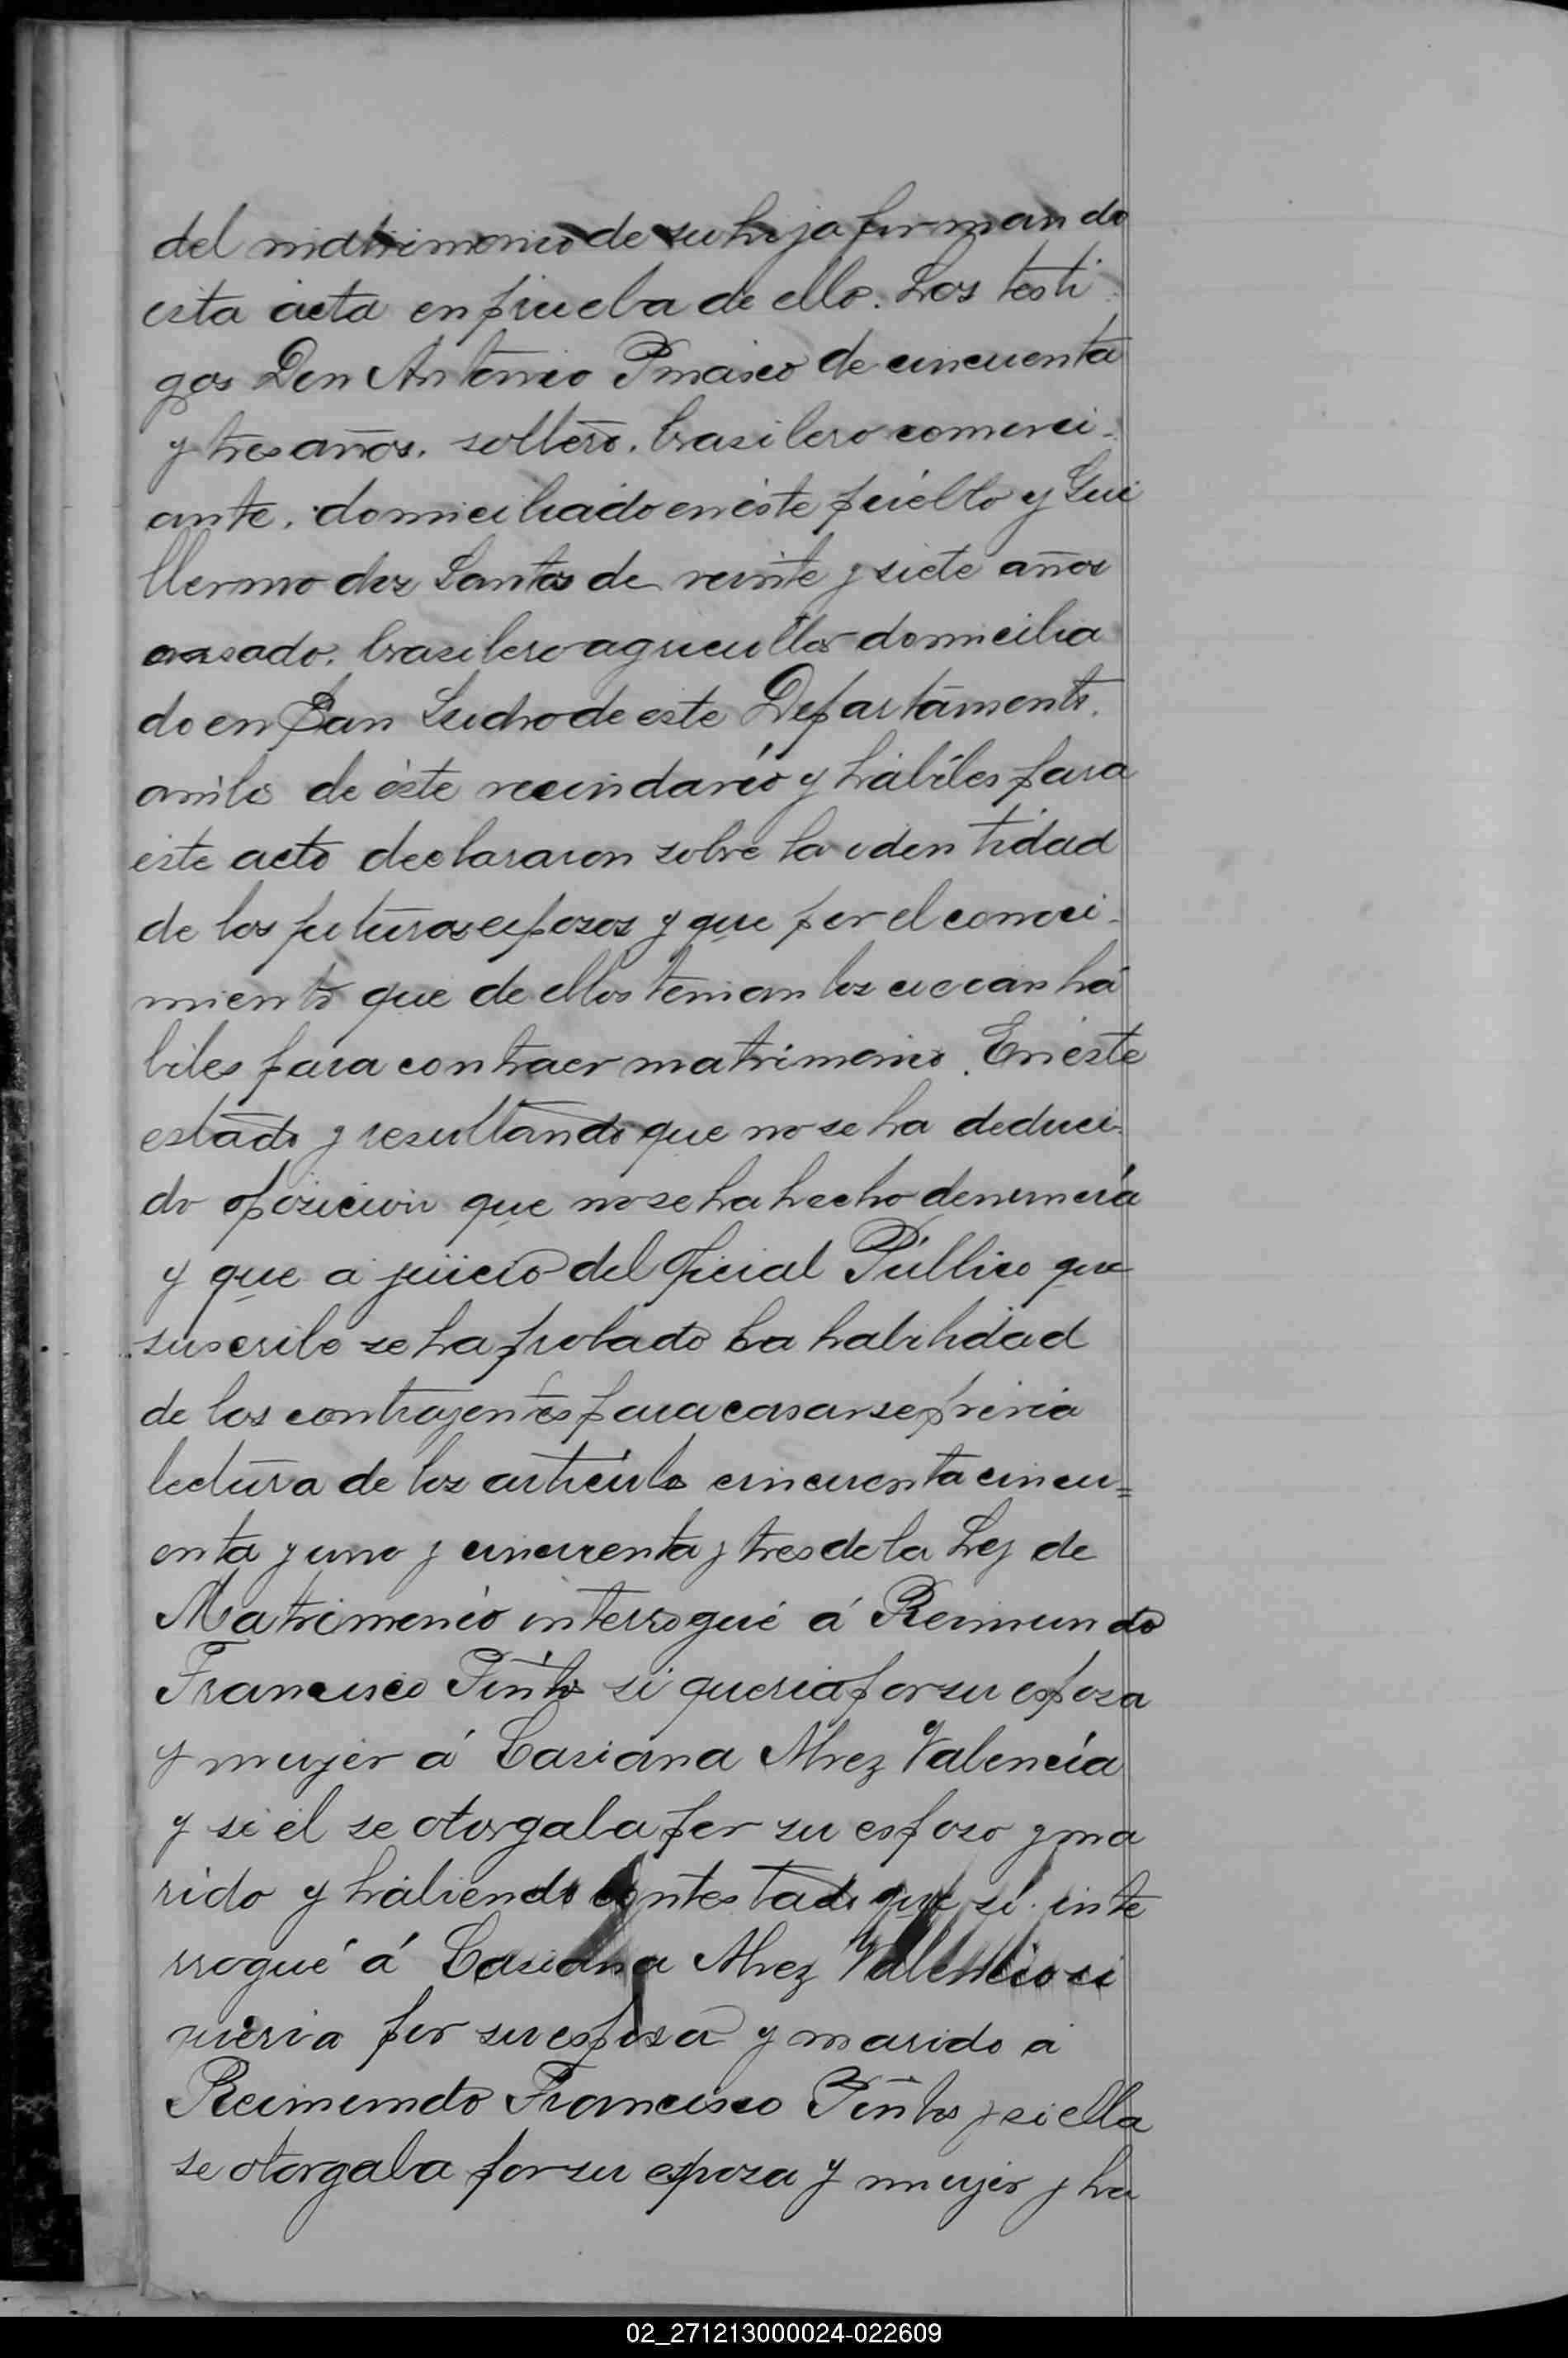 del matrimonio de su hija firmando
esta acta en prueba de ello. Los testi
gos Don Antonio de cincuenta
y tres años. soltero. brasilero comerci-
ante. domiciliado en éste pueblo y Gui
llermo doz Santos de veinte y siete años
casado. brasilero agricultor domicilia
do en San Isidro de este Departamento.
ambos de éste vecindario y hábiles para
este acto declararon sobre la identidad
de los futuros esposos y que por el conoci-
miento que de ellos tenian los creian há
biles para contraer matrimonio. En éste
estado y resultando que no se ha deduci-
do oposicion que no se ha hecho denuncia
y que a juicio del Oficial Público que
suscribe se ha probado la habilidad
de los contrayentes para casarse previa
lectura de loz articulos cincuenta cincu=
enta y uno y cincuenta y tres de la Ley de
Matrimonio interrogué á Reimundo
Francisco Pinto si queria por su esposa
y mujer á Casiana Alvez Valencia
y si él se otorgaba por su esposo y ma
rido y habiendo contestado que sí. inte
rrogué á Casiana Alvez Valencia si
queria por su esposo y marido a
Reimundo Francisco Pinto y si ella
se otorgaba por su espoza y mujer y ha
02_271213000024-022609